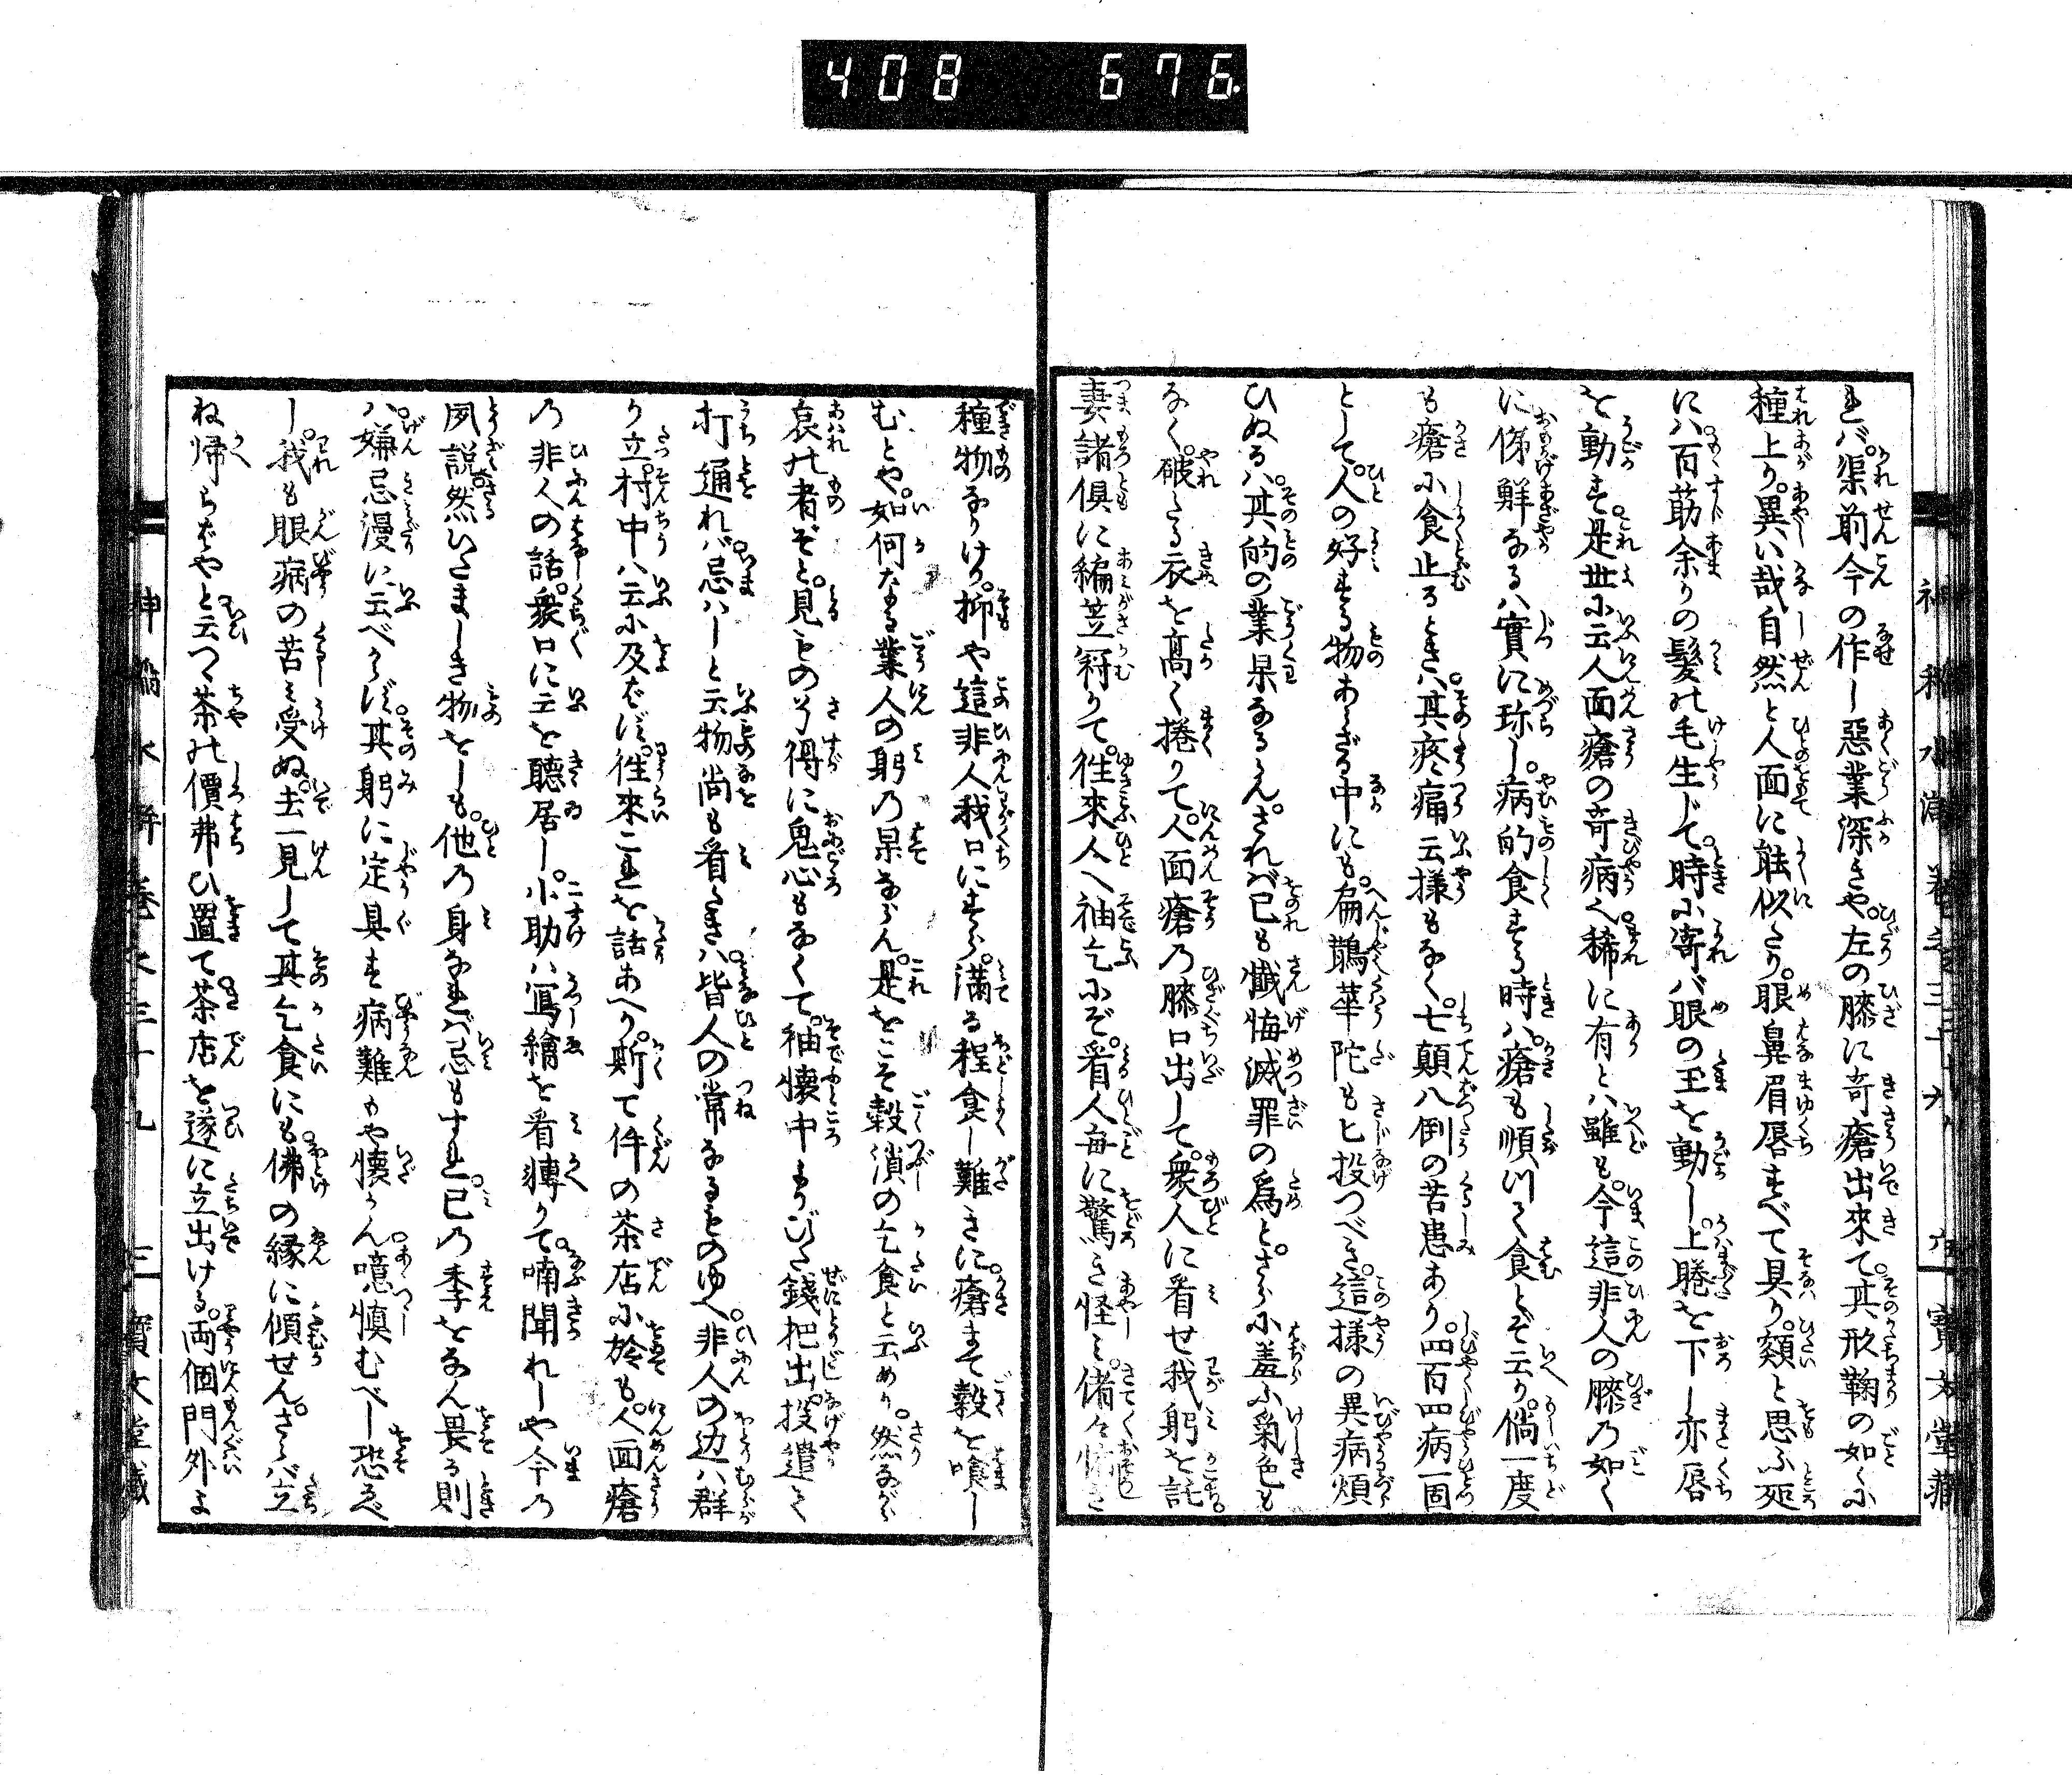 408 676
きバ。渠前今の作し惡業深きや。左の膝に奇瘡出來て。其形鞠の如くに
種上り。異い哉自然と人面に能似たり。眼鼻眉唇すべて具り。額と思ふ處
にハ。百筋余りの髪の毛生じて。時に寄バ眼の玉を動し。上睠を下し亦唇
を動す。是世に云人面瘡の奇病へ。稀に有とハ雖も。今這非人の膝の如く
に俤鮮なるハ實に珎し。病的食する時ハ。瘡も順つて食むとぞ云り。倘一度
も瘡に食止るときハ。其疼痛云様もなく。七顛八倒の苦患あり。四百四病一箇
として。人の好する物あらざる中にも。扁鵲華陀も匕投つべき。這様の異病煩
ひぬるハ。其的の業果なるらん。されバ己も懺悔滅罪の爲と。さらに羞ふ氣色も
なく。破たる衣を高く捲りて。人面瘡の膝口出して。衆人に看せ我躬を託
妻諸倶に編笠冠りて。徃來人へ袖乞ふぞ。看人毎に驚き怪み。偖々怖き
種物なりけり。抑や這非人我口にすら。満る程食し難きに。瘡まで穀を喰し
むとや。如何なる業人の躬の果ならん。是をこそ穀潰の乞食と云めり。然ながら
哀れ者ぞと。見るもの得に鬼心もなくて。袖懐中まさぐり錢把出。投遣て
打通れバ。忌ハしと云物尚も看たきハ。皆人の常なるものゆへ。非人の辺ハ群
り立。村中ハ云に及ばず。徃來これを話あへり。斯て件の茶店に於も。人面瘡
の非人の話。衆口に云を聽居し。小助ハ寫繪を看轉りて。喃聞れしや今の
夙説。然いたましき物をしも。他の身なれバ忌もすれ。己の季をなん畏る則
ハ。嫌忌漫に云べからず。其躬に定具す病難もや懐かん。噫慎むべし恐るべ
し。我も眼病の苦を受ぬ。去一見して其乞食にも。佛の縁に傾せん。さらバ立
ね帰らばやと云つゝ茶の價弗ひ置て茶店を遂に立出ける。両個門外よ
神稲水滸 卷之三十九 三 寶文堂藏